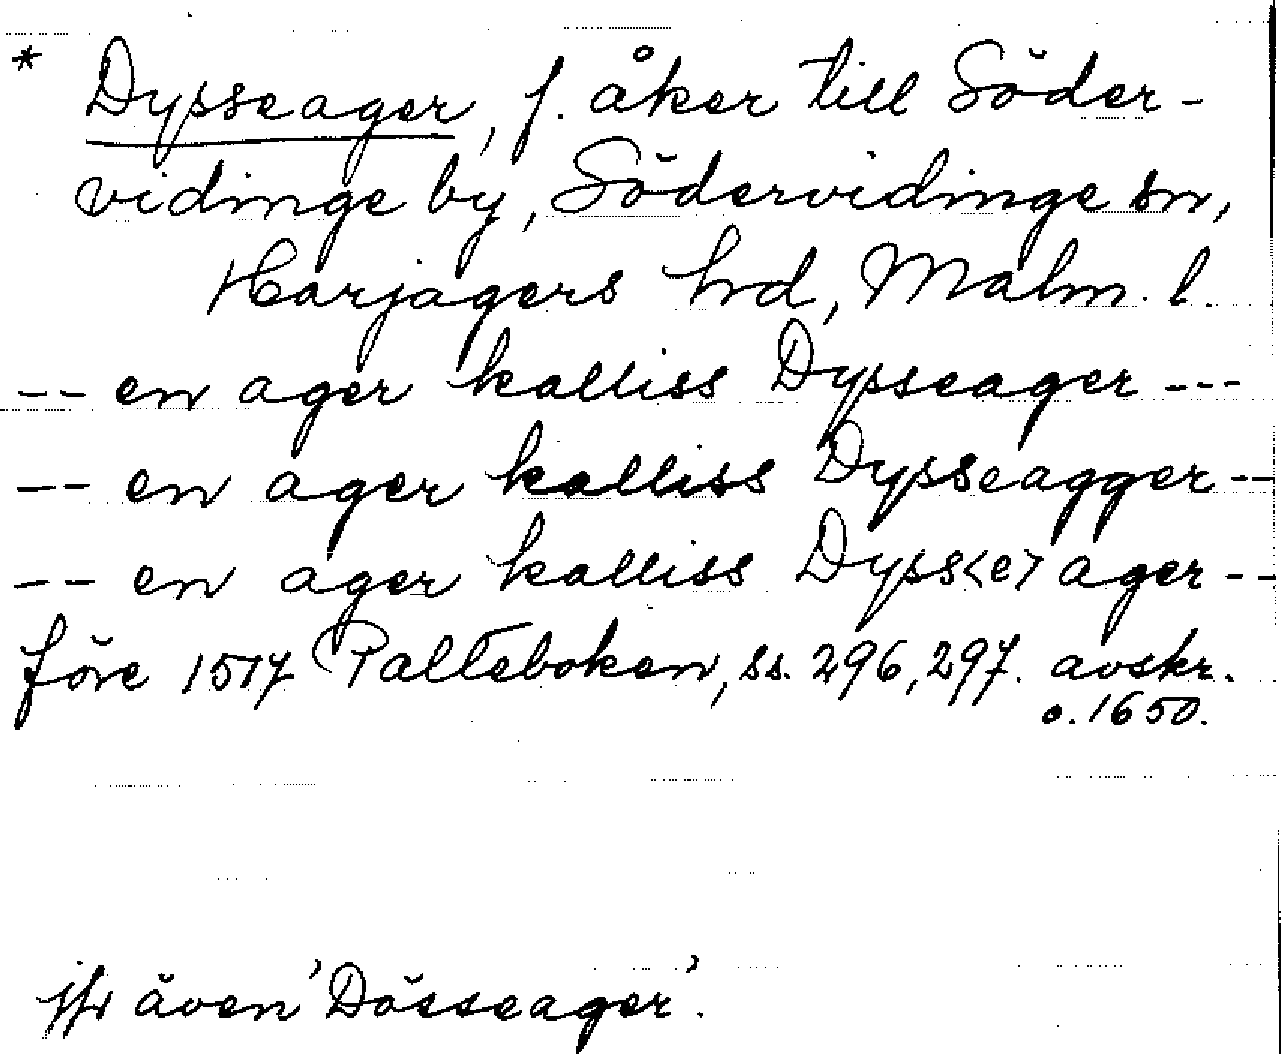 * Dysseager, f. åker till Söder-
vidinge by, Södervidinge sn,
Harjagers hrd, Malm. l.
-- en ager kalliss Dysseager ---
-- en ager kalliss Dysseagger --
-- en ager kalliss Dyss<e>ager --
före 1517 Palteboken, ss. 296, 297. avskr.
o. 1650.
jfr även 'Dösseager'.